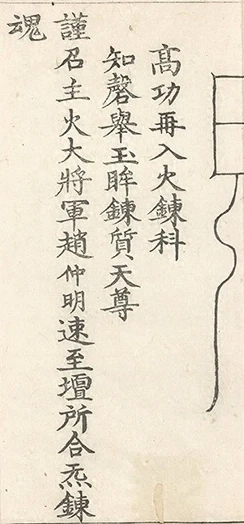 高功再入火鍊科
知磬舉玉眸鍊質天尊
謹召主火大將軍趙仲明速至壇所合炁鍊
魂